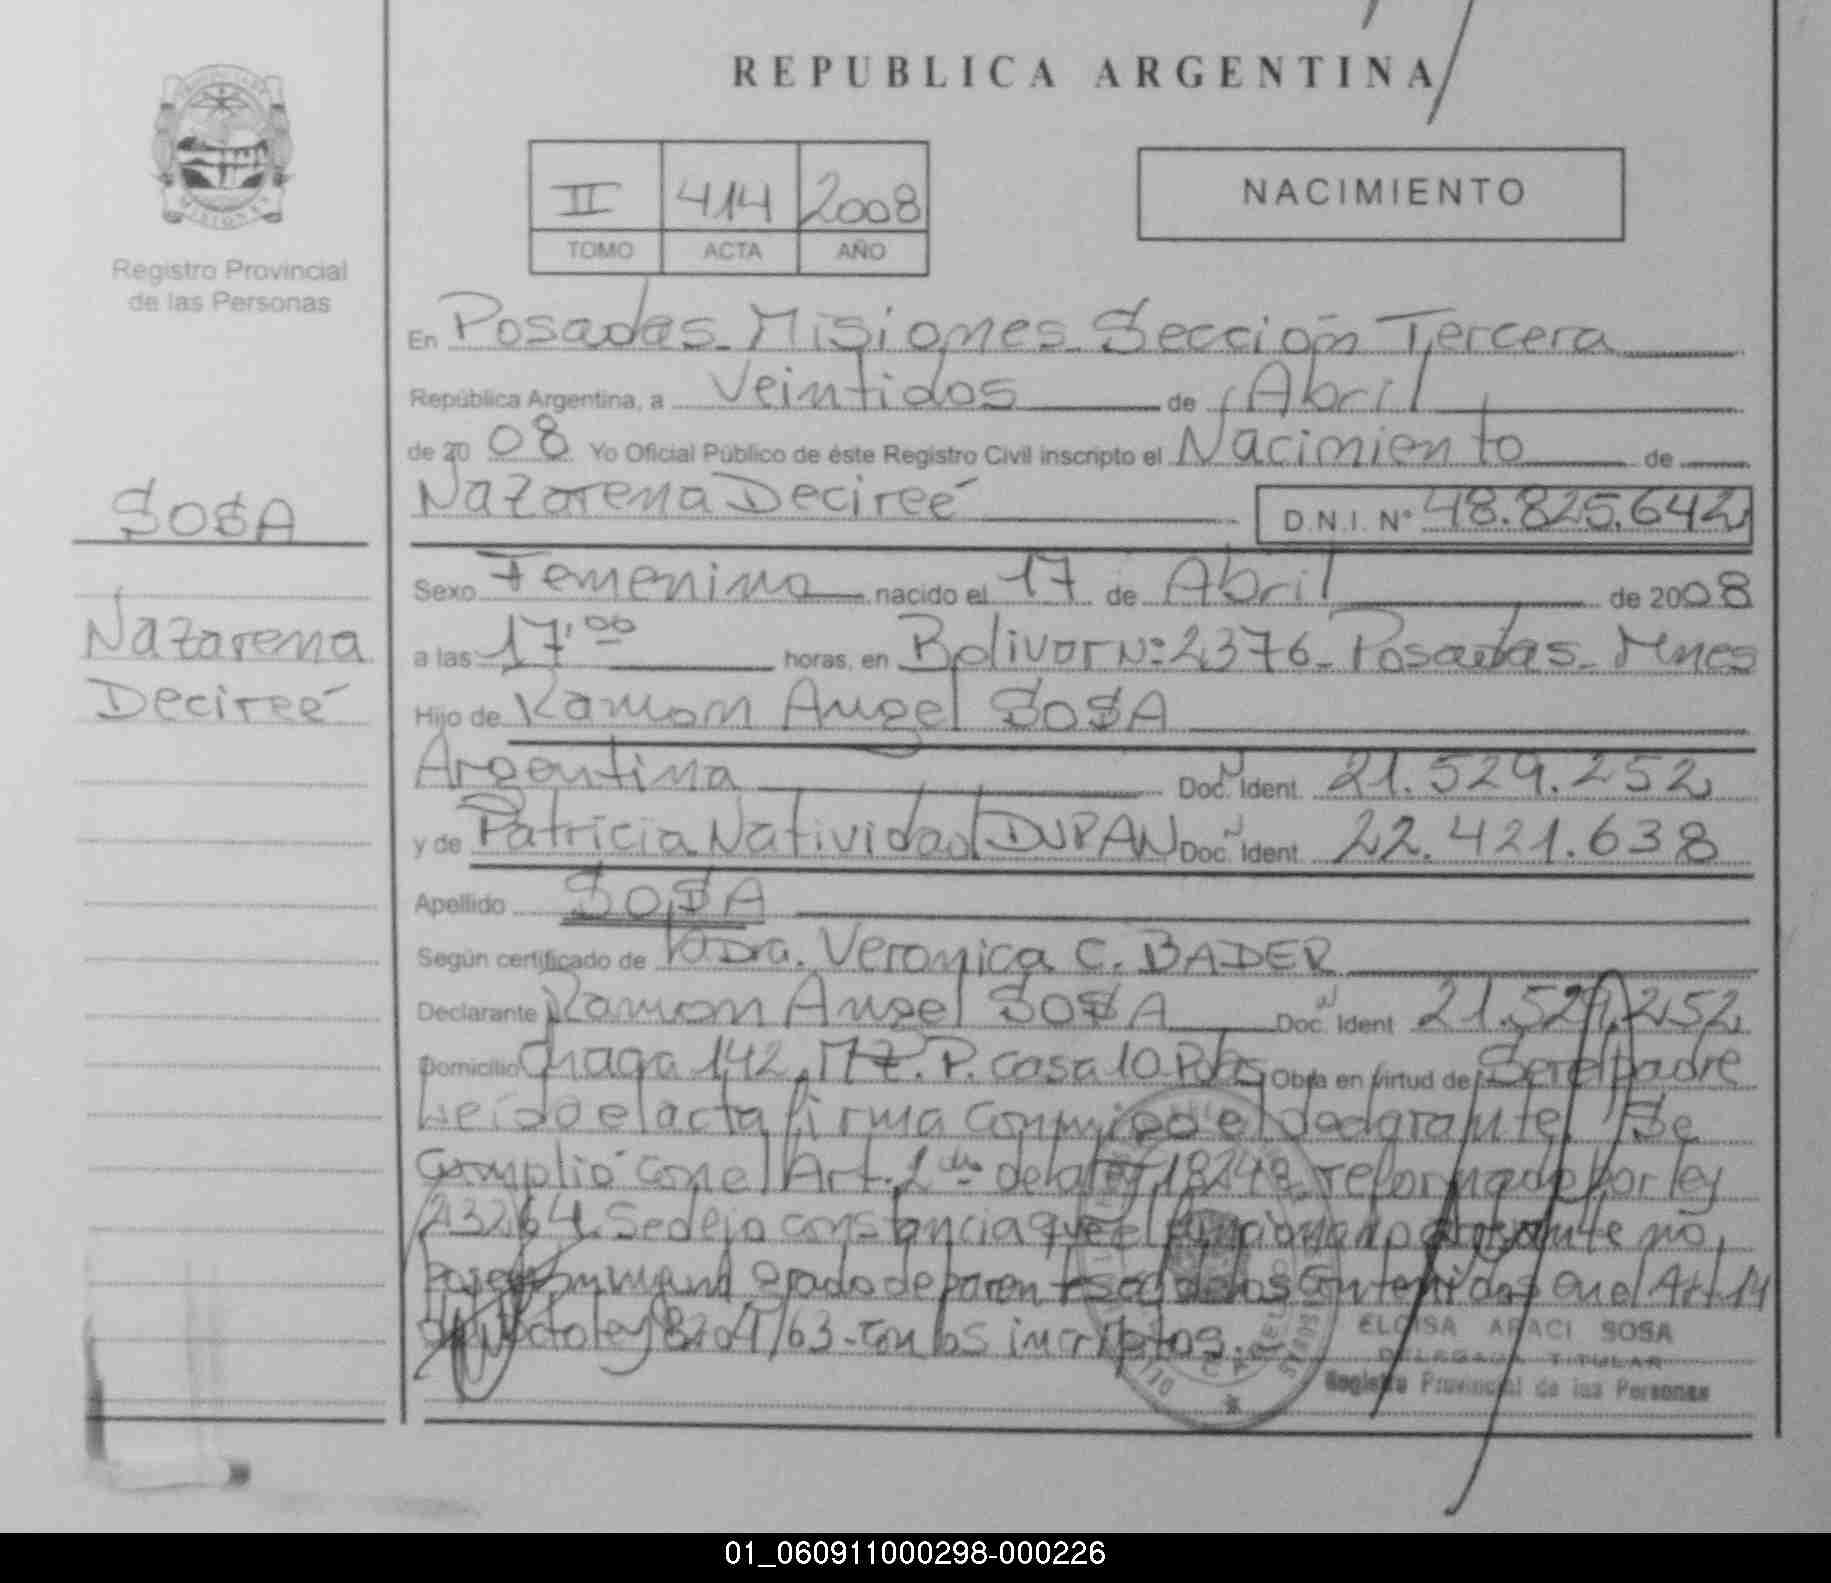 REPUBLICA ARGENTINA
MISIONES
Registro Provincial
de las Personas
II 414 2008
TOMO ACTA AÑO
NACIMIENTO
En Posadas Misiones Sección Tercera
República Argentina, a Veintidos de Abril
de 2008 Yo Oficial Público de éste Registro Civil inscripto el Nacimiento de
SOSA
Nazarena Decireé D.N.I. Nº 48.825.642
Sexo Femenino nacido el 17 de Abril de 2008
Nazarena
Decireé
a las 17,00 horas, en Bolivar Nº 2376 Posadas Mnes
Hijo de Ramon Angel SOSA
Argentina Doc. Ident. 21.529.252
y de Patricia Natividad DUPAN Doc. Ident. 22.421.638
Apellido SOSA
Según certificado de Dra. Veronica C. BADER
Declarante Ramon Angel SOSA Doc. Ident 21.529.252
Domicilio Chaga 142, MZ. P. casa 10 Pdas Obra en virtud de Ser el padre
Leído el acta firma conmigo el declarante. Se
cumplió con el Art. 2do de la ley 18248 reformado por ley
23264. Se deja constancia que el no
grado de parentesco de los contenidos en el Art. 14
ley 8204/63 con los inscriptos.
ELOISA ARACI SOSA
DELEGADA TITULAR
Registro Provincial de las Personas
01_060911000298-000226